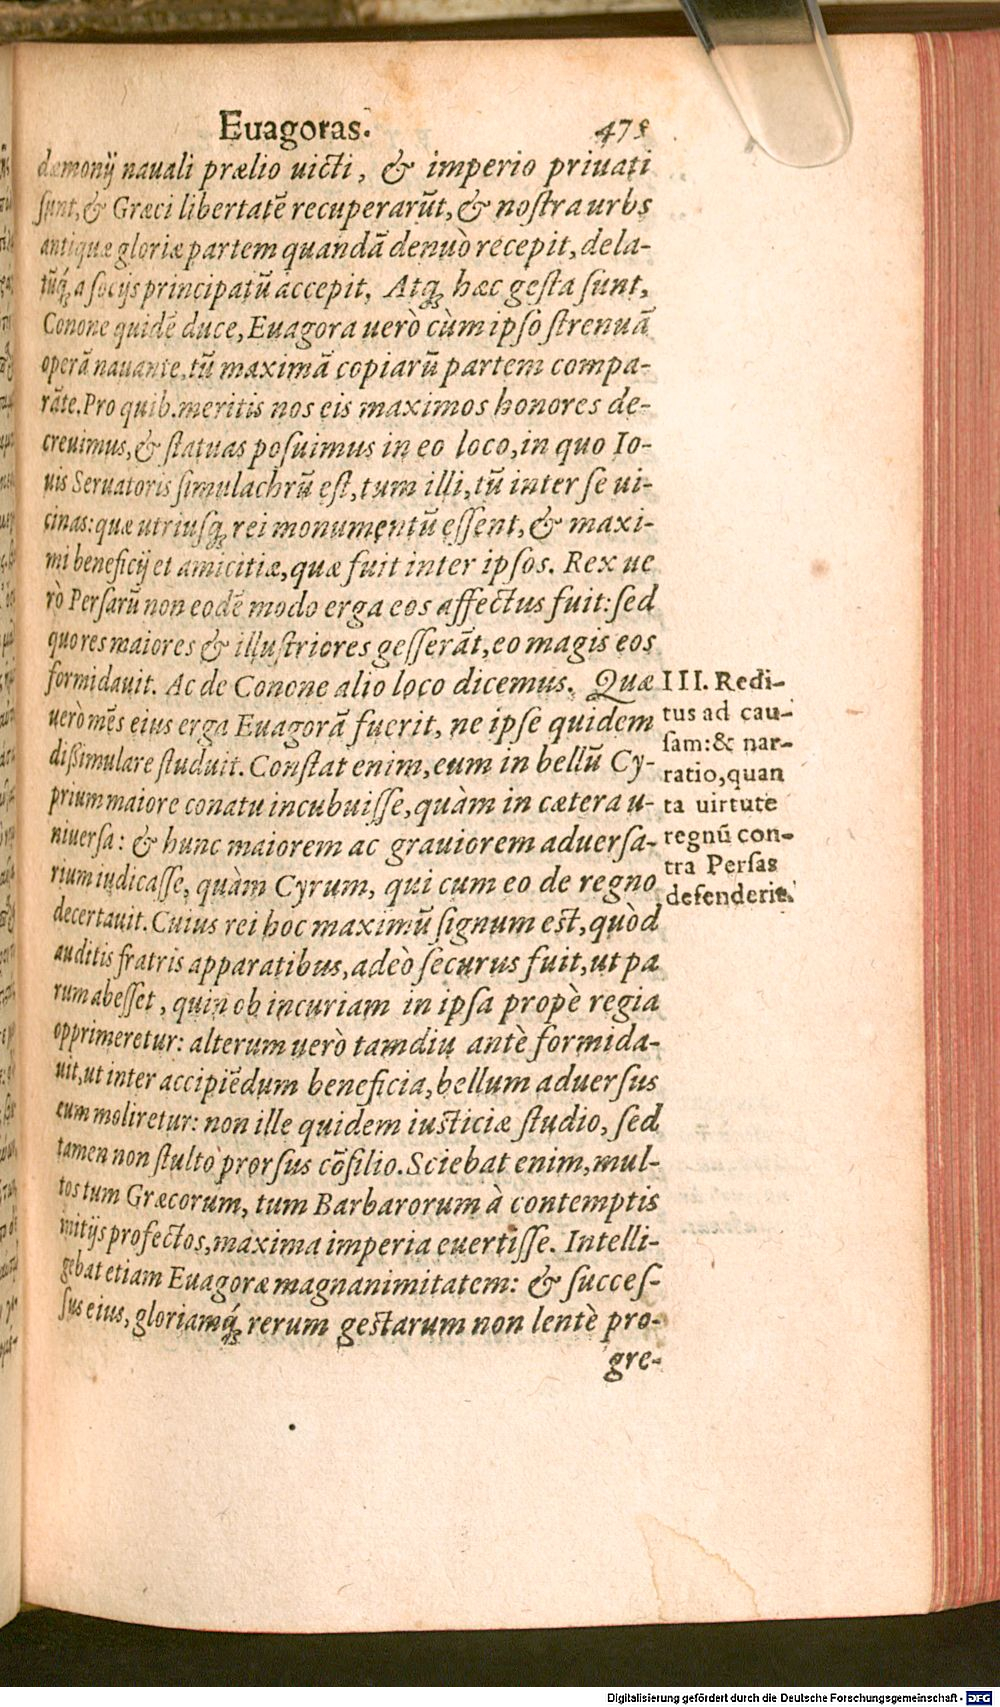 Euagoras. 475
dæmonij nauali prælio uicti, & imperio priuati
sunt, & Græci libertatē recuperarūt, & nostra urbs
antiquæ gloriæ partem quandā denuò recepit, dela-
tūq́; a socijs principatū accepit, Atq; hæc gesta sunt,
Conone quidē duce, Euagora uerò cùm ipso strenuā
operā nauante, tū maximā copiarū partem compa-
rāte. Pro quib. meritis nos eis maximos honores de-
creuimus, & statuas posuimus in eo loco, in quo Io-
uis Seruatoris simulachrū est, tum illi, tū inter se ui-
cinas: quæ utriusq; rei monumentū essent, & maxi-
mi beneficij et amicitiæ, quæ fuit inter ipsos. Rex ue
rò Persarū non eodē modo erga eos affectus fuit: sed
quo res maiores & illustriores gesserāt, eo magis eos
formidauit. Ac de Conone alio loco dicemus. Quæ
uerò mēs eius erga Euagorā fuerit, ne ipse quidem
dissimulare studuit. Constat enim, eum in bellū Cy-
prium maiore conatu incubuisse, quàm in cætera u-
niuersa: & hunc maiorem ac grauiorem aduersa-
rium iudicasse, quàm Cyrum, qui cum eo de regno
decertauit. Cuius rei hoc maximū signum est, quòd
auditis fratris apparatibus, adeò securus fuit, ut pa
rum abesset, quin ob incuriam in ipsa propè regia
opprimeretur: alterum uerò tamdiu antè formida-
uit, ut inter accipiēdum beneficia, bellum aduersus
eum moliretur: non ille quidem iusticiæ studio, sed
tamen non stulto prorsus cōsilio. Sciebat enim, mul-
tos tum Græcorum, tum Barbarorum à contemptis
initijs profectos, maxima imperia euertisse. Intelli-
gebat etiam Euagoræ magnanimitatem: & succes-
sus eius, gloriamq́; rerum gestarum non lentè pro-
gre-
III. Redi-
tus ad cau-
sam: & nar-
ratio, quan
ta uirtute
regnū con-
tra Persas
defenderit.
Digitalisierung gefördert durch die Deutsche Forschungsgemeinschaft - DFG